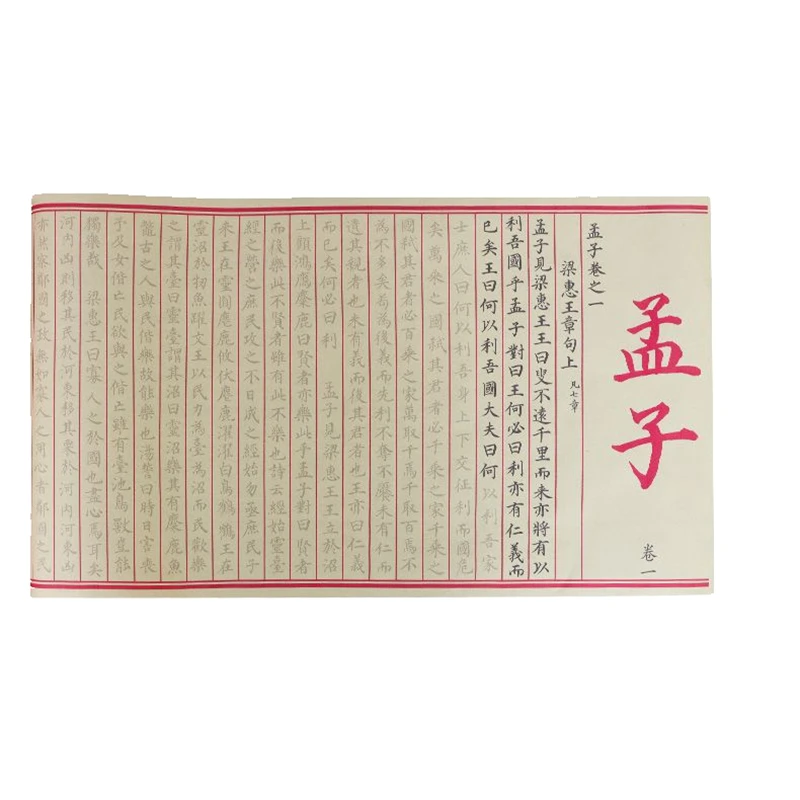 孟子
卷一
孟子卷之一
梁惠王章句上 凡七章
孟子見梁惠王王曰叟不遠千里而来亦將有以
利吾國乎孟子對曰王何必曰利亦有仁義而
已矣王曰何以利吾國大夫曰何以利吾家
士庶人曰何以利吾身上下交征利而國危
矣萬乘之國弑其君者必千乘之家千乘之
國弑其君者必百乘之家萬取千焉千取百焉不
為不多矣苟為後義而先利不奪不饜未有仁而
遺其親者也未有義而後其君者也王亦曰仁義
而已矣何必曰利 孟子見梁惠王王立於沼
上顧鴻鴈麋鹿曰賢者亦樂此乎孟子對曰賢者
而後樂此不賢者雖有此不樂也詩云經始靈臺
經之營之庶民攻之不日成之經始勿亟庶民子
来王在靈囿麀鹿攸伏麀鹿濯濯白鳥鶴鶴王在
靈沼於牣魚躍文王以民力為臺為沼而民歡樂
之謂其臺曰靈臺謂其沼曰靈沼樂其有麋鹿魚
鼈古之人與民偕樂故能樂也湯誓曰時日害喪
予及女偕亡民欲與之偕亡雖有臺池鳥獸豈能
獨樂哉 梁惠王曰寡人之於國也盡心焉耳矣
河内凶則移其民於河東移其粟於河内河東凶
亦然察鄰國之政無如寡人之用心者鄰國之民